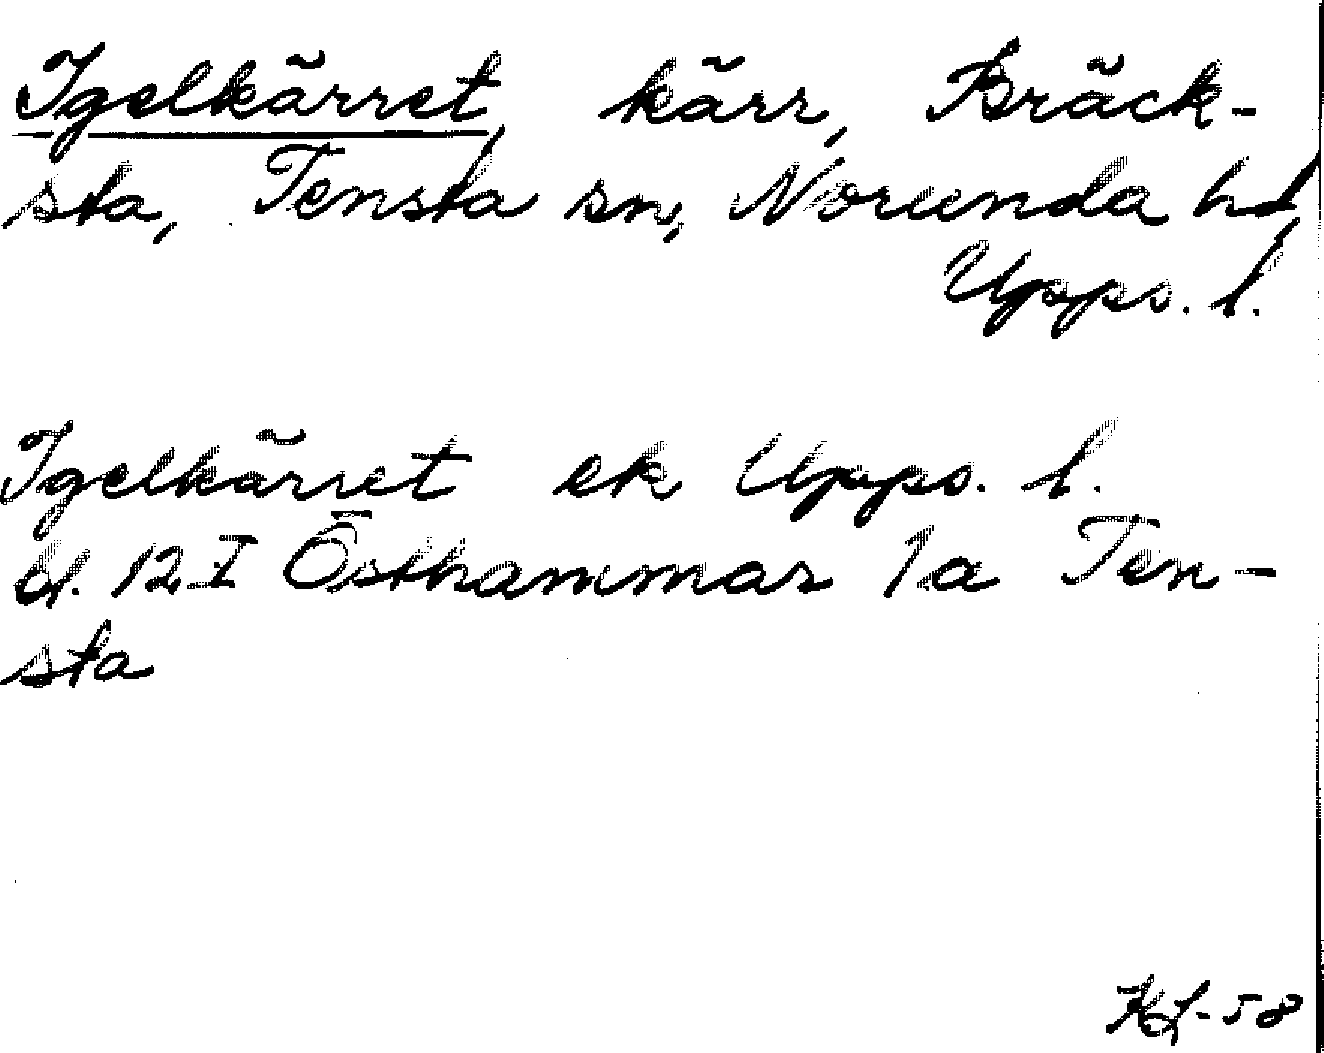 Igelkärret, kärr, Bräck-
sta, Tensta sn, Norunda hd,
Upps. l.
Igelkärret ek Upps. l.
bl. 12 I Östhammar 1a Ten-
sta
KL-58